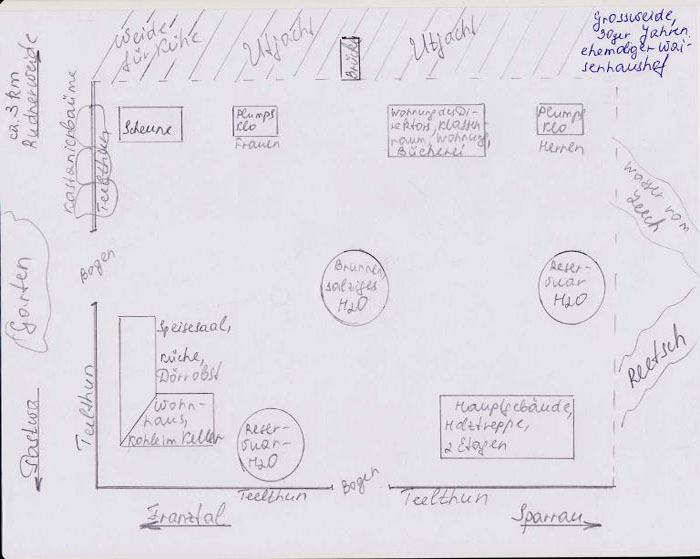 Weide
für Kühe
Utjacht
Brücke
Utjacht
Grossweide,
30ger Jahren,
ehemaliger Wai-
senhaushof
ca. 3 km
Rudnerweide
Kastanienbäume
Teelthun
Scheune
Plumps
Klo
Frauen
Wohnung des Di-
rektors, Klassen-
raum, Wohnung,
Bücherei
Plumps
Klo
Herren
Wasser vom
Leech
Garten
Bogen
Brunnen
salziges
H2O
Reser-
vuar
H2O
Reetsch
Pastwa
Teelthun
Speisesaal,
Küche,
Dörrobst
Wohn-
haus,
Kohle im Keller
Reser-
vuar-
H2O
Hauptgebäude,
Holztreppe,
2 Etagen
Teelthun
Bogen
Teelthun
Franztal
Sparrau